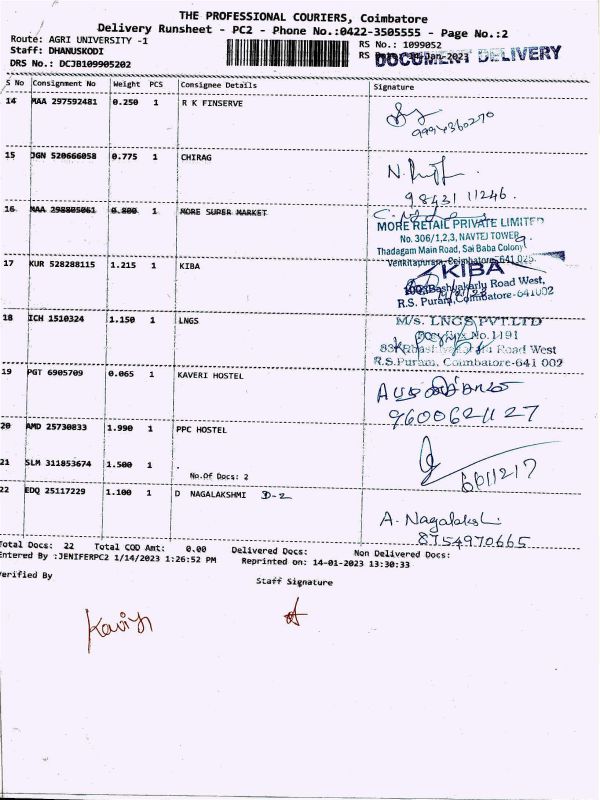 THE PROFESSIONAL COURIERS, Coimbatore
Delivery Runsheet - PC2 - Phone No.:0422-3505555 - Page No.:2
Route: AGRI UNIVERSITY -1
RS No.: 1099052
Staff: DHANUSKODI
DOCUMENT DELIVERY
DRS No.: DCJB109905202
S No Consignment No Weight PCS Consignee Details Signature
14 MAA 297592481 0.250 1 R K FINSERVE
9994360270
15 JGN 520666058 0.775 1 CHIRAG
98431 11246.
16 MAA 298805061 0.800 1 MORE SUPER MARKET
MORE RETAIL PRIVATE LIMITED
No. 306/1,2,3, NAVTEJ TOWER,
Thadagam Main Road, Sai Baba Colony
Venkitapuram, Coimbatore-641 025.
17 KUR 528288115 1.215 1 KIBA
KIBA
Road West,
R.S. Puram, Coimbatore-641002
18 ICH 1510324 1.150 1 LNGS
M/s. LNGS PVT.LTD
No.1191
Road West
R.S.Puram, Coimbatore-641 002
19 PGT 6905709 0.065 1 KAVERI HOSTEL
9600621127
20 AMD 25730833 1.990 1 PPC HOSTEL
21 SLM 311853674 1.500 1 .
No.Of Docs: 2
6611217
22 EDQ 25117229 1.100 1 D NAGALAKSHMI D-2
A. Nagalakshmi
8754970665
Total Docs: 22 Total COD Amt: 0.00 Delivered Docs: Non Delivered Docs:
Entered By :JENIFERPC2 1/14/2023 1:26:52 PM Reprinted on: 14-01-2023 13:30:33
Verified By
Staff Signature